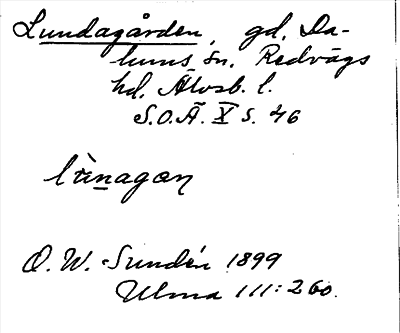 Lundagården, gd, Da-
lums sn, Redvägs
hd, Älvsb. l.
S.O.Ä. X s. 46
O. W. Sundén 1899
Ulma 111:260.